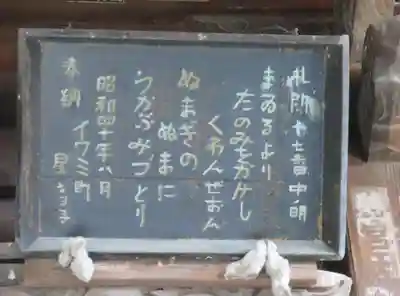 札所廿七番中ノ明
まゐるより
たのみをかけし
くわんぜおん
ぬまぎの
ぬまに
うかぶみづとり
昭和四十年八月
イワミ町
星キヨ子
奉納